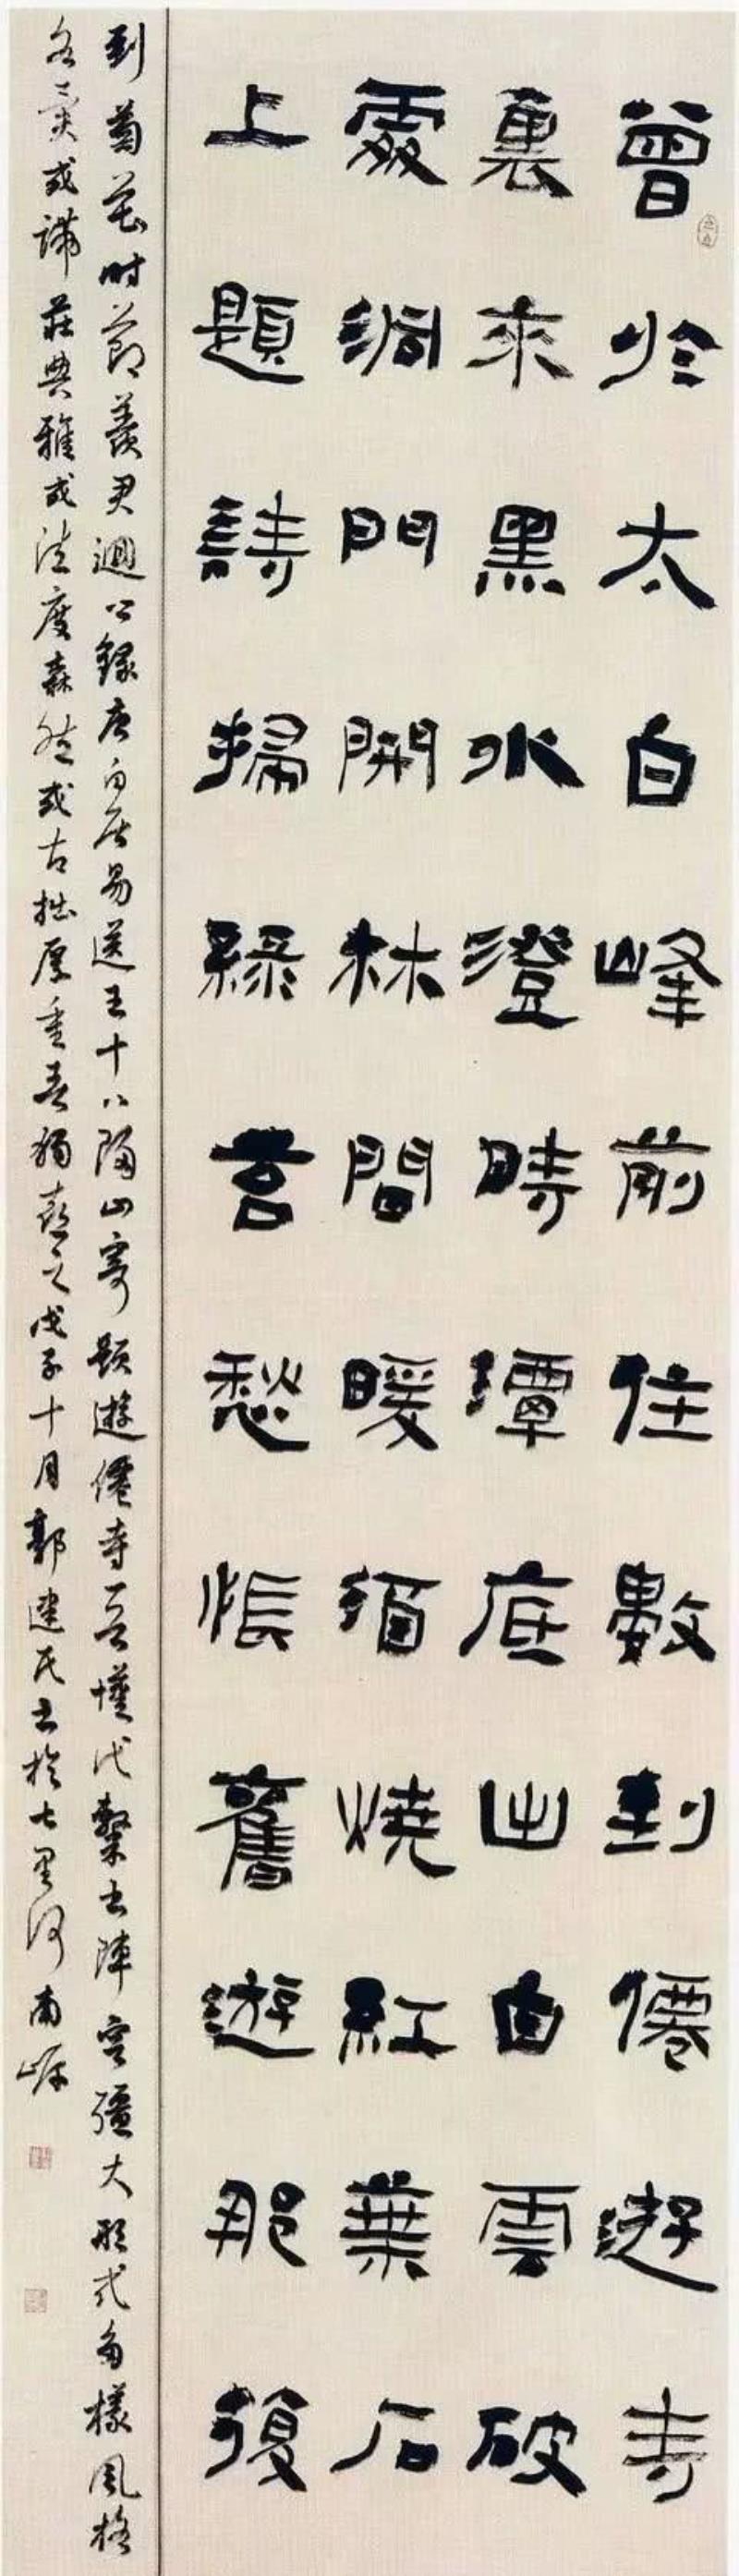 曾於太白峰前住數到僊遊寺
裏來黑水澄時潭底出白雲破
處洞門開林間暖酒燒紅葉石
上題詩掃綠苔惆悵舊遊那復
到菊花時節羨君迴 錄唐白居易送王十八歸山寄題遊僊寺 吾漢代隸書陣容彊大形式多樣風格
各異或謹莊典雅或法度森然或古拙厚重吾獨喜之戊子十月郭建民書於七里河南